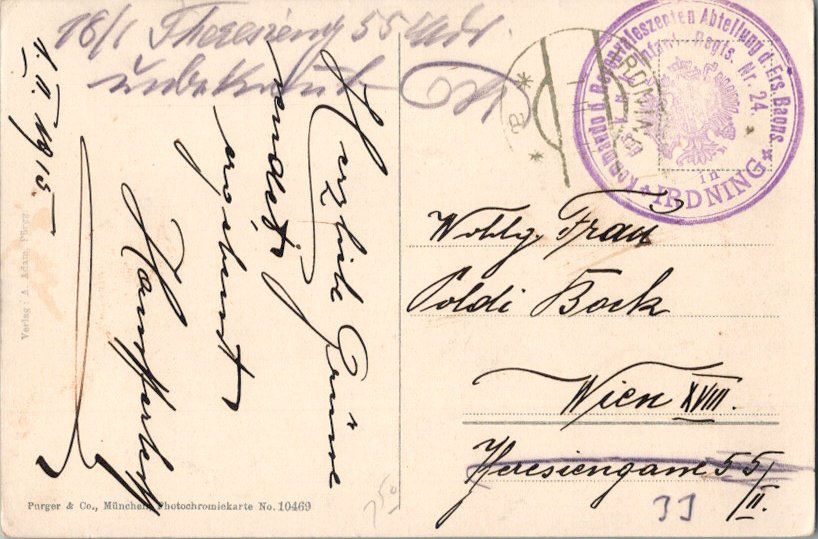 18/I Theresieng 55 Adr.
unbekannt
1.II.1915
Herzliche Grüsse
sendet
ergebenst
Kommando d. Rekonvaleszenten Abteilung d. Ers. Baons.
k. u. k. Infant. Regts. Nr. 24.
in
IRDNING
Wohlg. Frau
Poldi Bock
Wien XVIII.
Theresiengasse 55/II.
33
Verlag: A. Adam Pürgg
Purger & Co., München, Photochromiekarte No. 10469